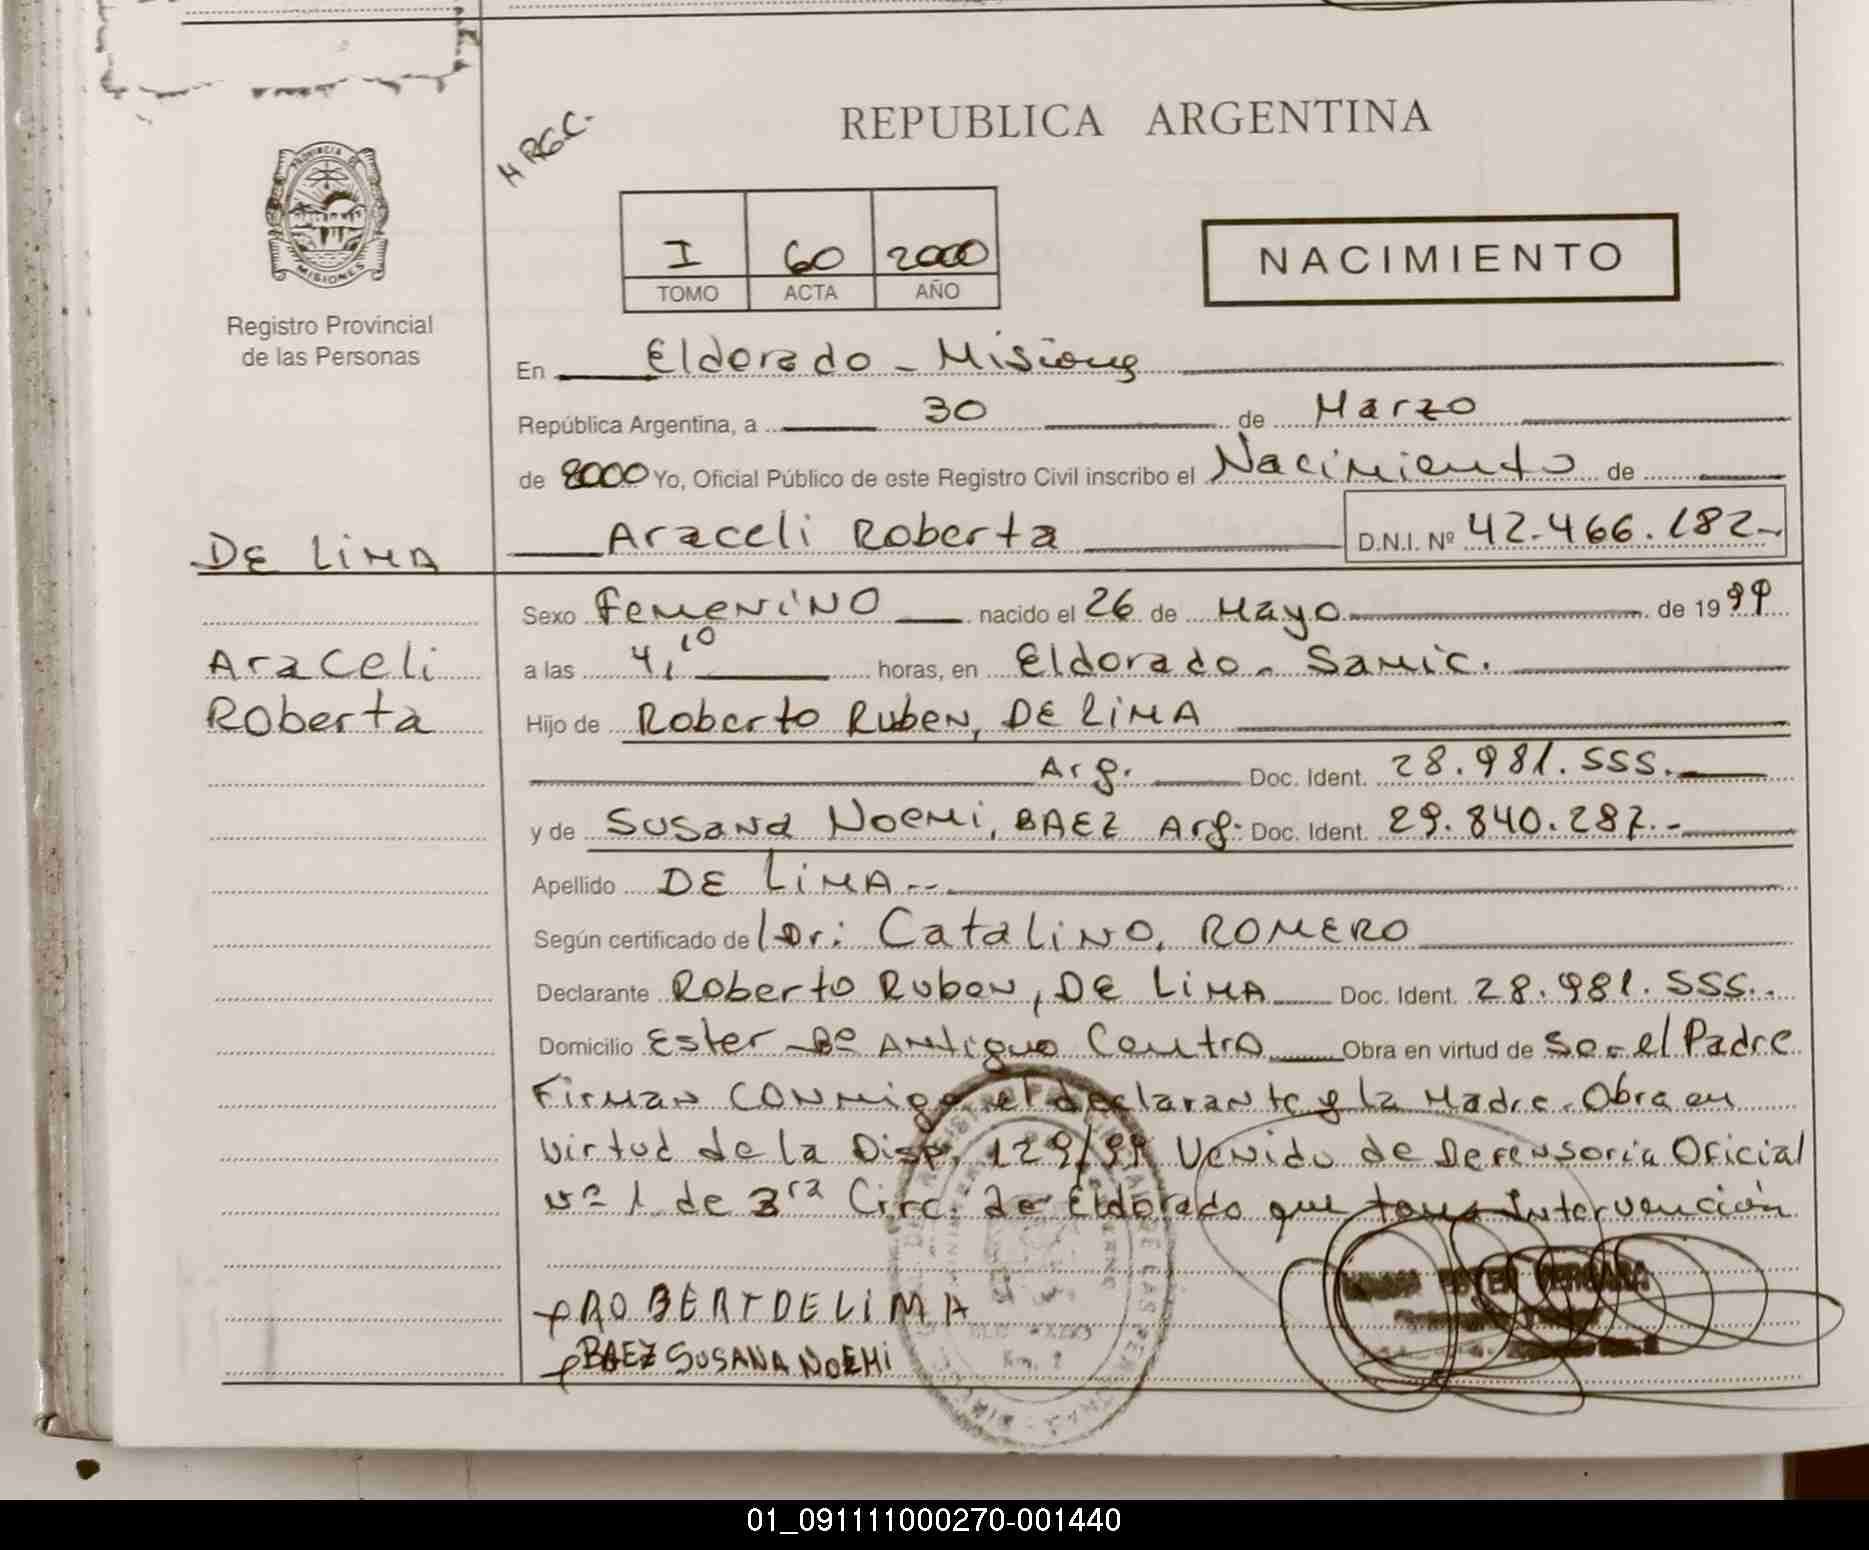 REPUBLICA ARGENTINA
H RGC.
PROVINCIA DE
MISIONES
Registro Provincial
de las Personas
I 60 2000
TOMO ACTA AÑO
NACIMIENTO
En Eldorado - Misiones
República Argentina, a 30 de Marzo
de 2000 Yo, Oficial Público de este Registro Civil inscribo el Nacimiento de
DE LIMA
Araceli Roberta D.N.I. Nº 42.466.182-
Sexo FEMENINO nacido el 26 de Mayo de 1999
Araceli
a las 4,10 horas, en Eldorado - Samic.
Roberta
Hijo de Roberto Ruben, DE LIMA
Arg. Doc. Ident. 28.981.555.
y de Susana Noemi, BAEZ Arg. Doc. Ident. 29.840.287.-
Apellido DE LIMA.--
Según certificado de Dr: Catalino, ROMERO
Declarante Roberto Ruben, DE LIMA Doc. Ident. 28.981.555..
Domicilio Ester Bº Antiguo Centro Obra en virtud de Ser el Padre
Firman conmigo el declarante y la Madre. Obra en
virtud de la Disp. 129/99 Venido de Defensoria Oficial
nº 1 de 3ra Circ. de Eldorado que toma Intervención
ROBERT DE LIMA
BAEZ SUSANA NOEMI
ESTER VERGARA
01_091111000270-001440